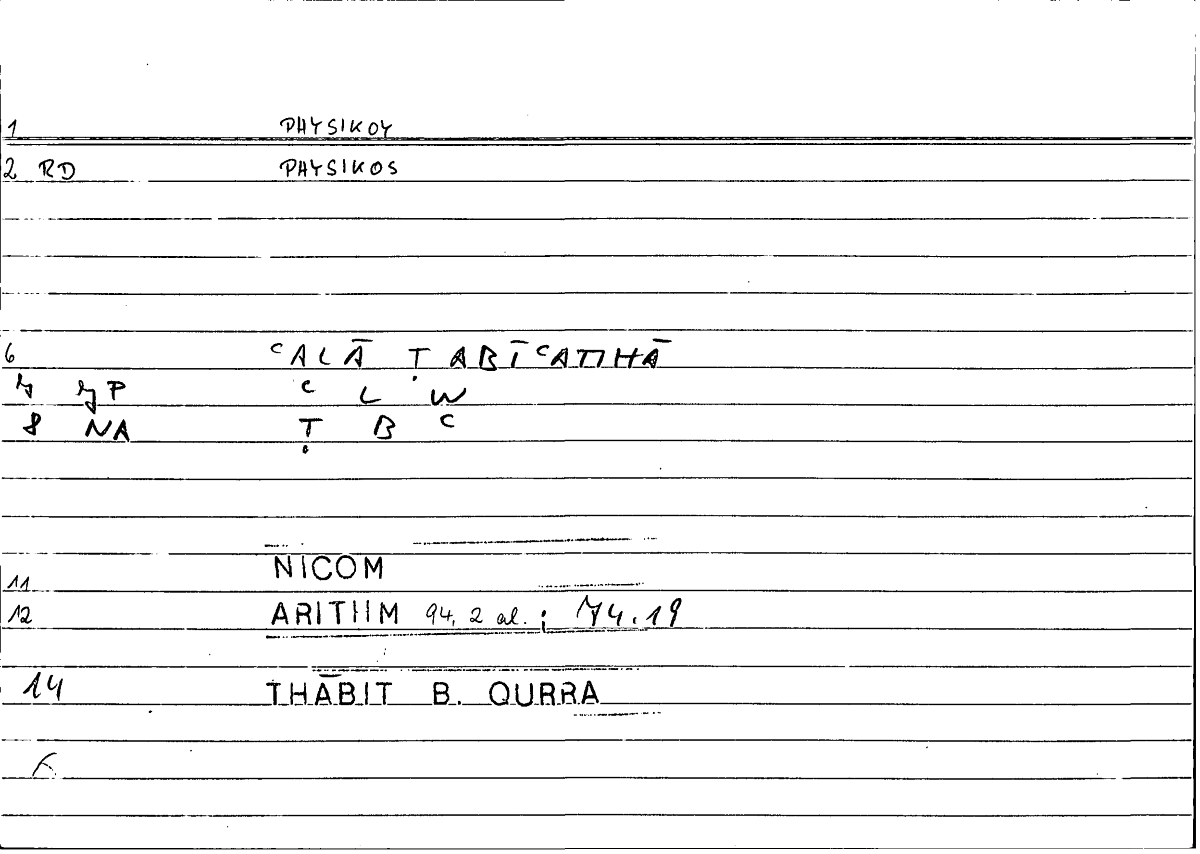 1 PHYSIKOY
2 RD PHYSIKOS
6 ᶜALĀ ṬABĪᶜATIHĀ
7 7P ᶜ L W
8 NA Ṭ B ᶜ
11 NICOM
12 ARITHM 94, 2 al. ; 74.19
14 THĀBIT B. QURRA